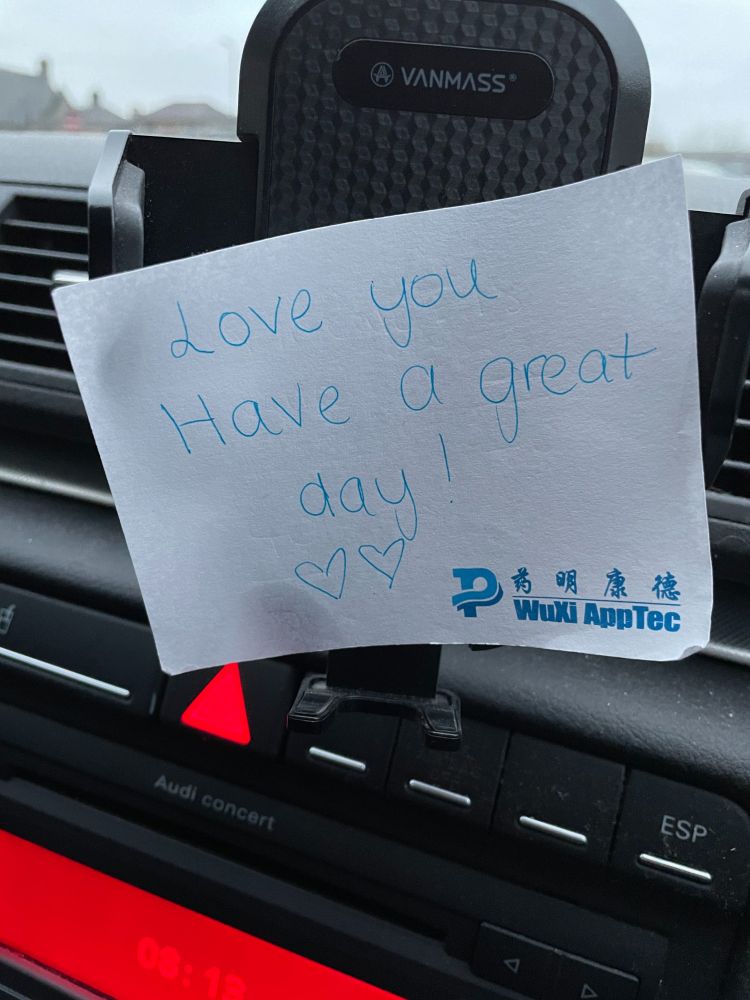 VANMASS®
Love you
Have a great
day!
♡♡
药明康德
WuXi AppTec
Audi concert
ESP
08:19